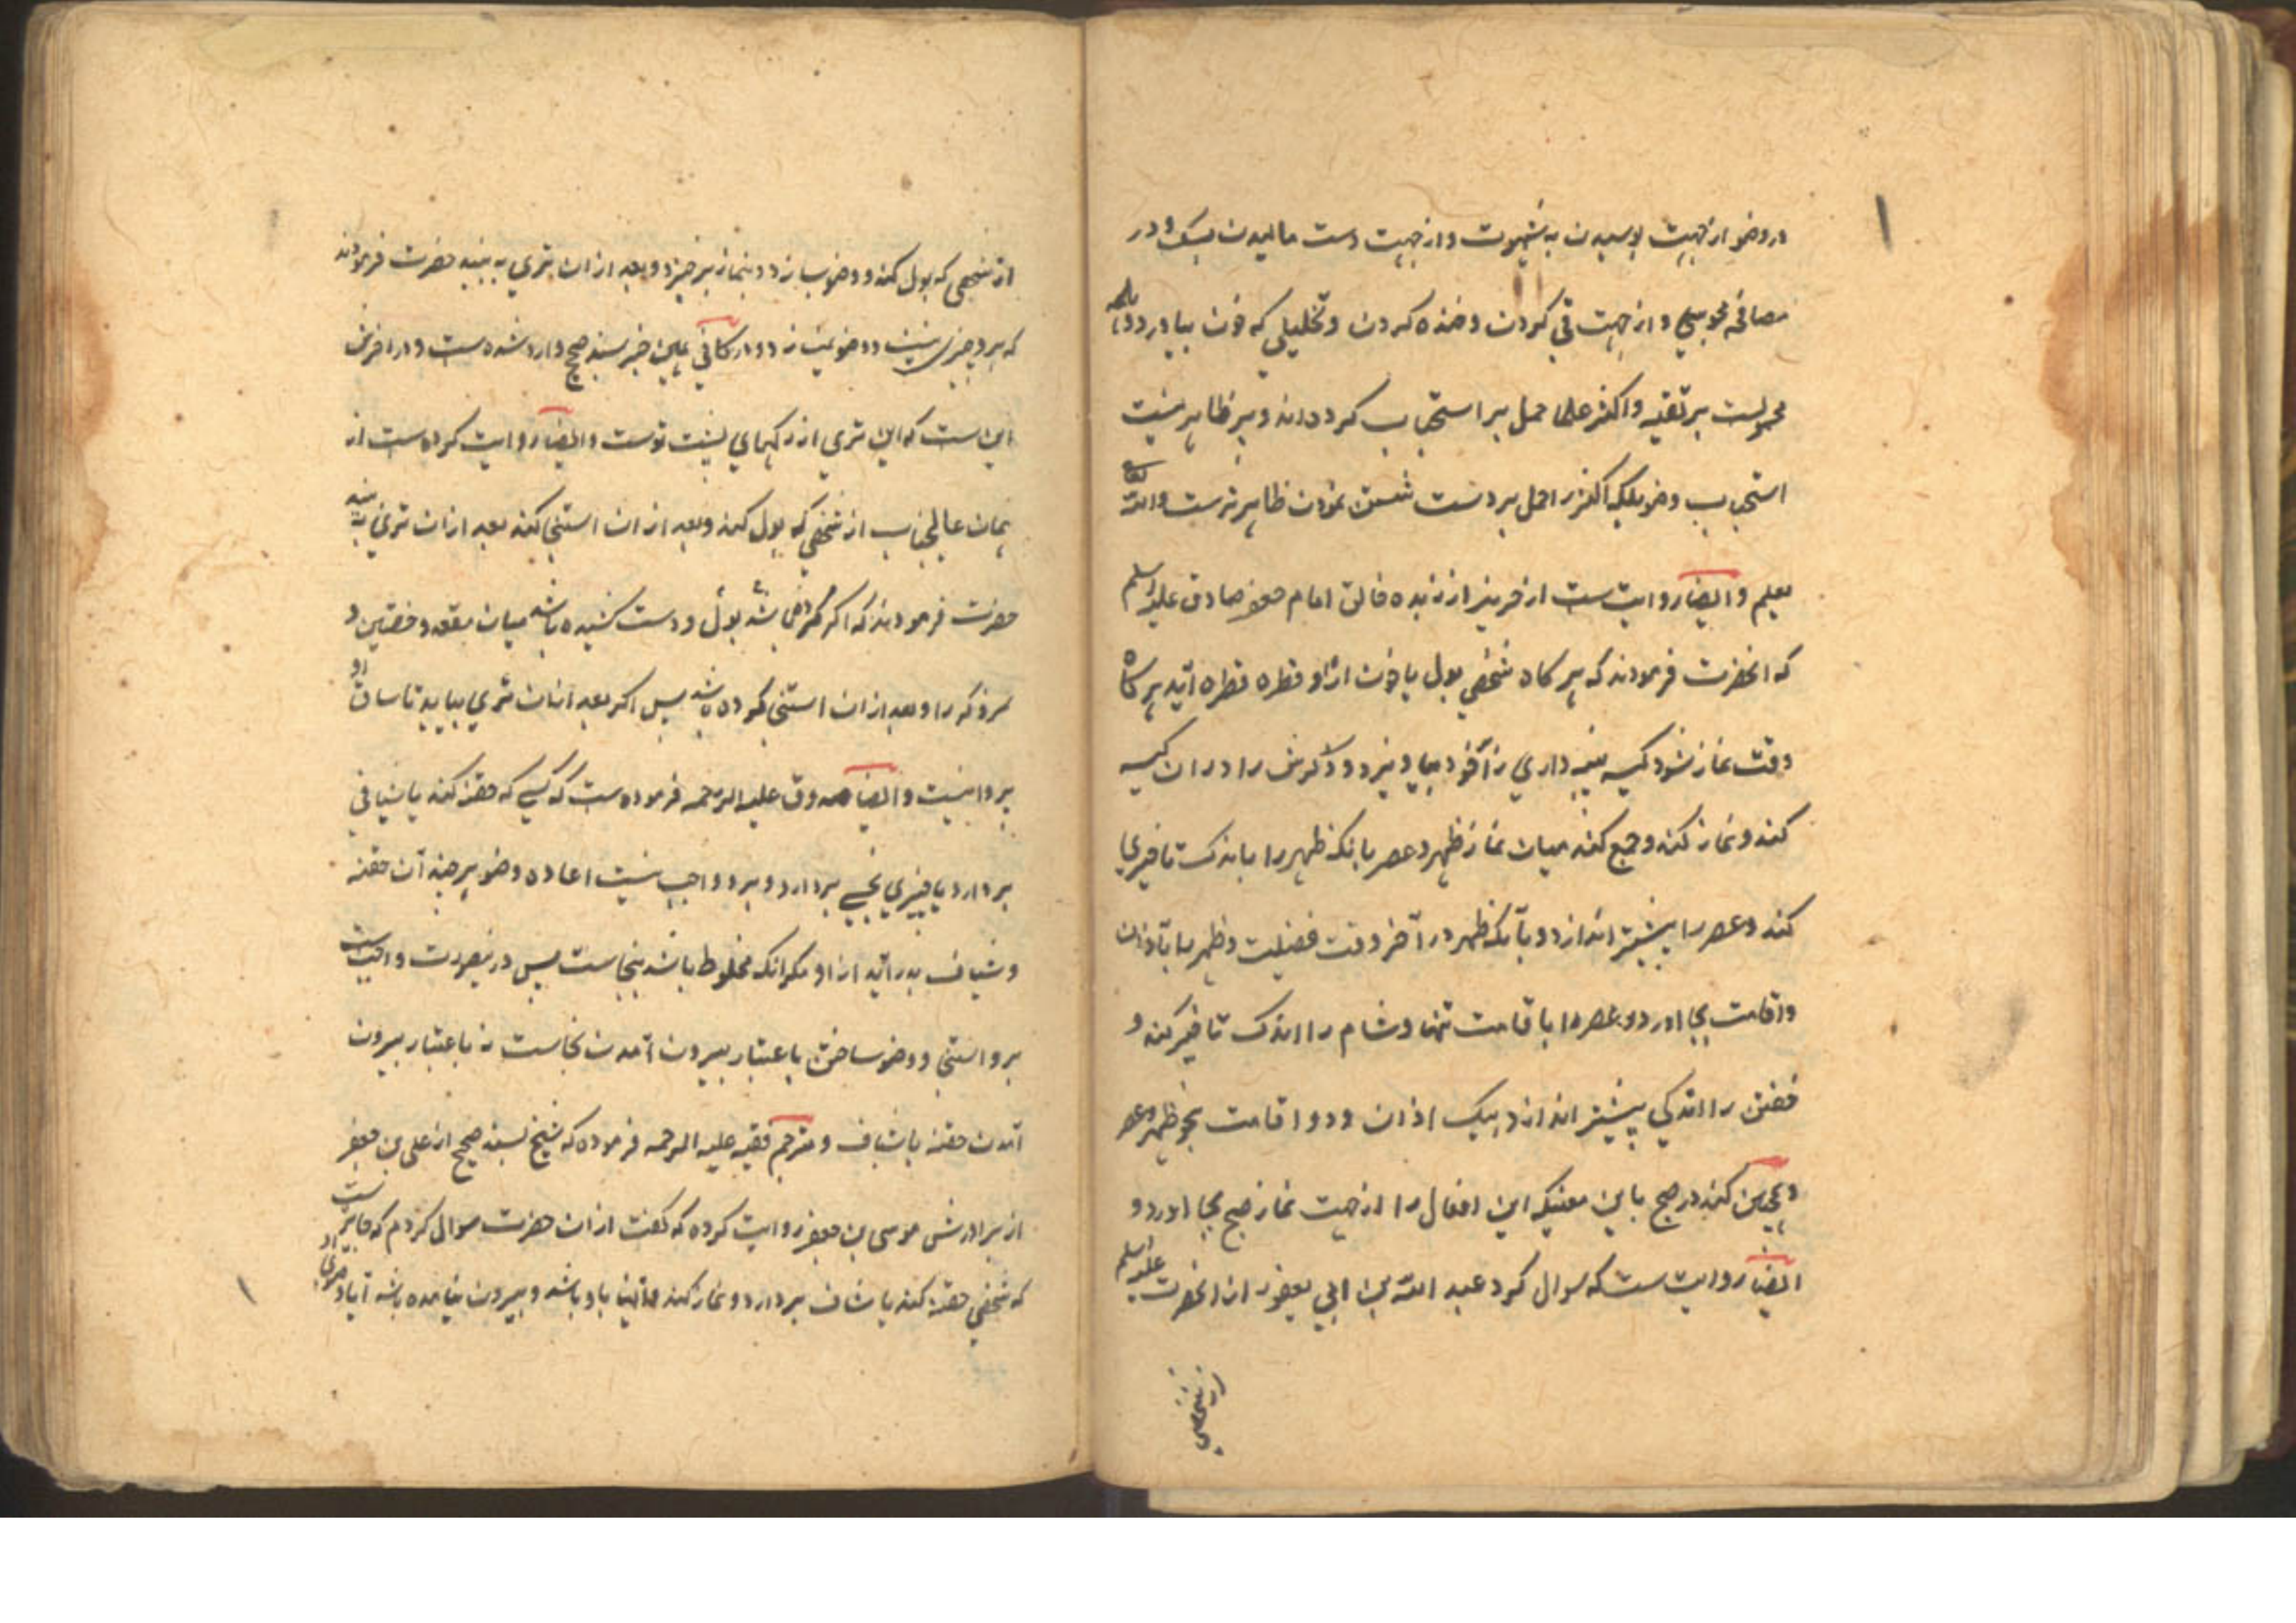 در وضو از جهت بوسیدن به شهوت و از جهت دست مالیدن بسک و در
مصافحه مجوسی و از جهت قی کردن و خنده کردن و تخلیلی که خون بیاورد
محمولست بر تقیه و اکثر علما حمل بر استحباب کرده‌اند و بر ظاهر نیست
استحباب وضو بلکه اکثر را حمل بر دست شستن نمودن ظاهرترست والله تعالی
یعلم و ایضا روایت ست از حریز از زبده خالق امام جعفر صادق علیه السلم
که انحضرت فرمودند که هر کاه شخصی بول یا خون از او قطره قطره آید هر کاه
وقت نماز شود کیسه پنبه داری را خود بیاویزد و ذکرش را در ان کیسه
کند و نماز کند و جمع کند میان نماز ظهر و عصر بانکه ظهر را باندک تاخیری
کند و عصر را پیشتر اندازد و بآنکه ظهر در آخر وقت فضیلت و ظهر را بآذان
و اقامت بجا اورد و عصر را با قامت تنها و شام را اندک تاخیر کند و
خفتن را اندکی پیشتر اندازد بیک اذان و دو اقامت بنحو ظهر و عصر
و همچنین کند در صبح باین معنیکه این افعال را از جهت نماز صبح بجا اورد و
ایضا روایت ست که سوال کرد عبد الله بن ابی یعفور از انحضرت علیه السلم
از شخصی
از شخصی که بول کند و وضو بسازد و بنماز برخیزد و بعد از ان تری به بیند حضرت فرمودند
که برو چیزی نیست و وضو نمیسازد و در کافی همین خبر بسند صحیح وارد شده ست و در اخرش
این ست که این تری از رکهای پشت توست و ایضا روایت کرده ست از
همان عالیجناب از شخصی که بول کند و بعد از ان استنجا کند بعد از ان تری به بیند
حضرت فرمودند که اکر بول و دست کشیده باشد میان مقعد و خصیتین و
سر ذکر را و بعد از ان استنجا کرده باشد پس اکر بعد از ان تری بیاید تا ساق او
پروا نیست و ایضا صدوق علیه الرحمه فرموده ست که کسی که حقنه کند یا شیافی
بردارد یا چیزی نجسی بردارد و برو واجب نیست اعاده وضو هر چند آن حقنه
و شیاف بدر آید از او مکر انکه مخلوط باشد بنجاست پس درینصورت واجب ست
برو استنجا و وضو ساختن باعتبار بیرون آمدن نجاست نه باعتبار بیرون
آمدن حقنه یا شیاف و مترجم فقیه علیه الرحمه فرموده که شیخ بسند صحیح از علی بن جعفر
از برادرش موسی بن جعفر روایت کرده که کفت از ان حضرت سوال کردم که جایز ست
که شخصی حقنه کند یا شاف بردارد و نماز کند و اینها با او باشد و بیرون نیامده باشد آیا وضوی او